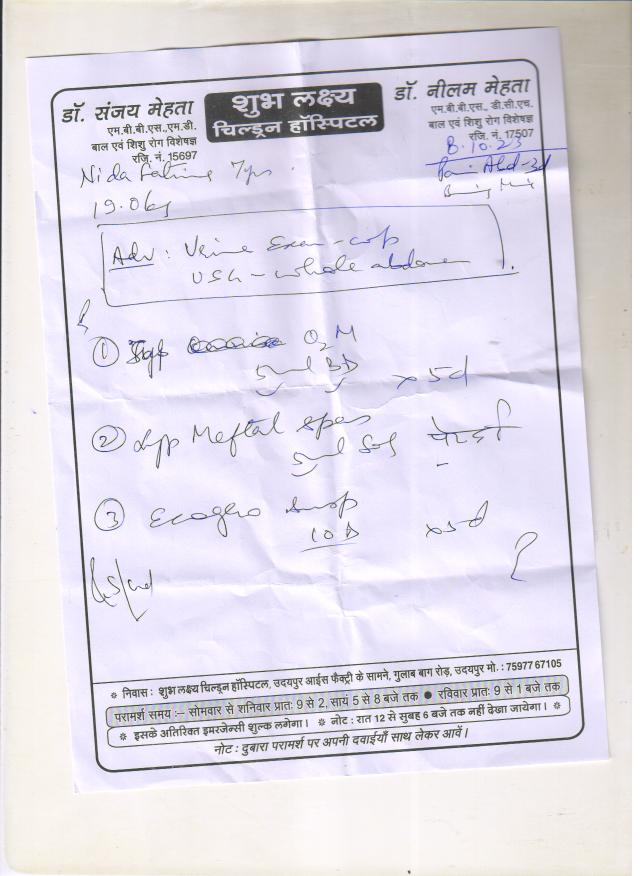 डॉ. संजय मेहता
एम.बी.बी.एस.,एम.डी.
बाल एवं शिशु रोग विशेषज्ञ
रजि. नं. 15697
शुभ लक्ष्य
चिल्ड्रन हॉस्पिटल
डॉ. नीलम मेहता
एम.बी.बी.एस., डी.सी.एच.
बाल एवं शिशु रोग विशेषज्ञ
रजि. नं. 17507
8.10.23
Nida Fatima 7yrs.
Pain Abd-3d
19.0kg
Adv: Urine Exam-
USG-whole abdomen
① Syp O2M
5ml BD x5d
② Syp Meftal Spas
5ml SOS
③ x5d
❉ निवास : शुभ लक्ष्य चिल्ड्रन हॉस्पिटल, उदयपुर आईस फैक्ट्री के सामने, गुलाब बाग रोड़, उदयपुर मो. : 75977 67105
परामर्श समय :– सोमवार से शनिवार प्रातः 9 से 2, सायं 5 से 8 बजे तक ● रविवार प्रातः 9 से 1 बजे तक
❉ इसके अतिरिक्त इमरजेन्सी शुल्क लगेगा। ❉ नोट : रात 12 से सुबह 6 बजे तक नहीं देखा जायेगा। ❉
नोट : दुबारा परामर्श पर अपनी दवाईयाँ साथ लेकर आवें।